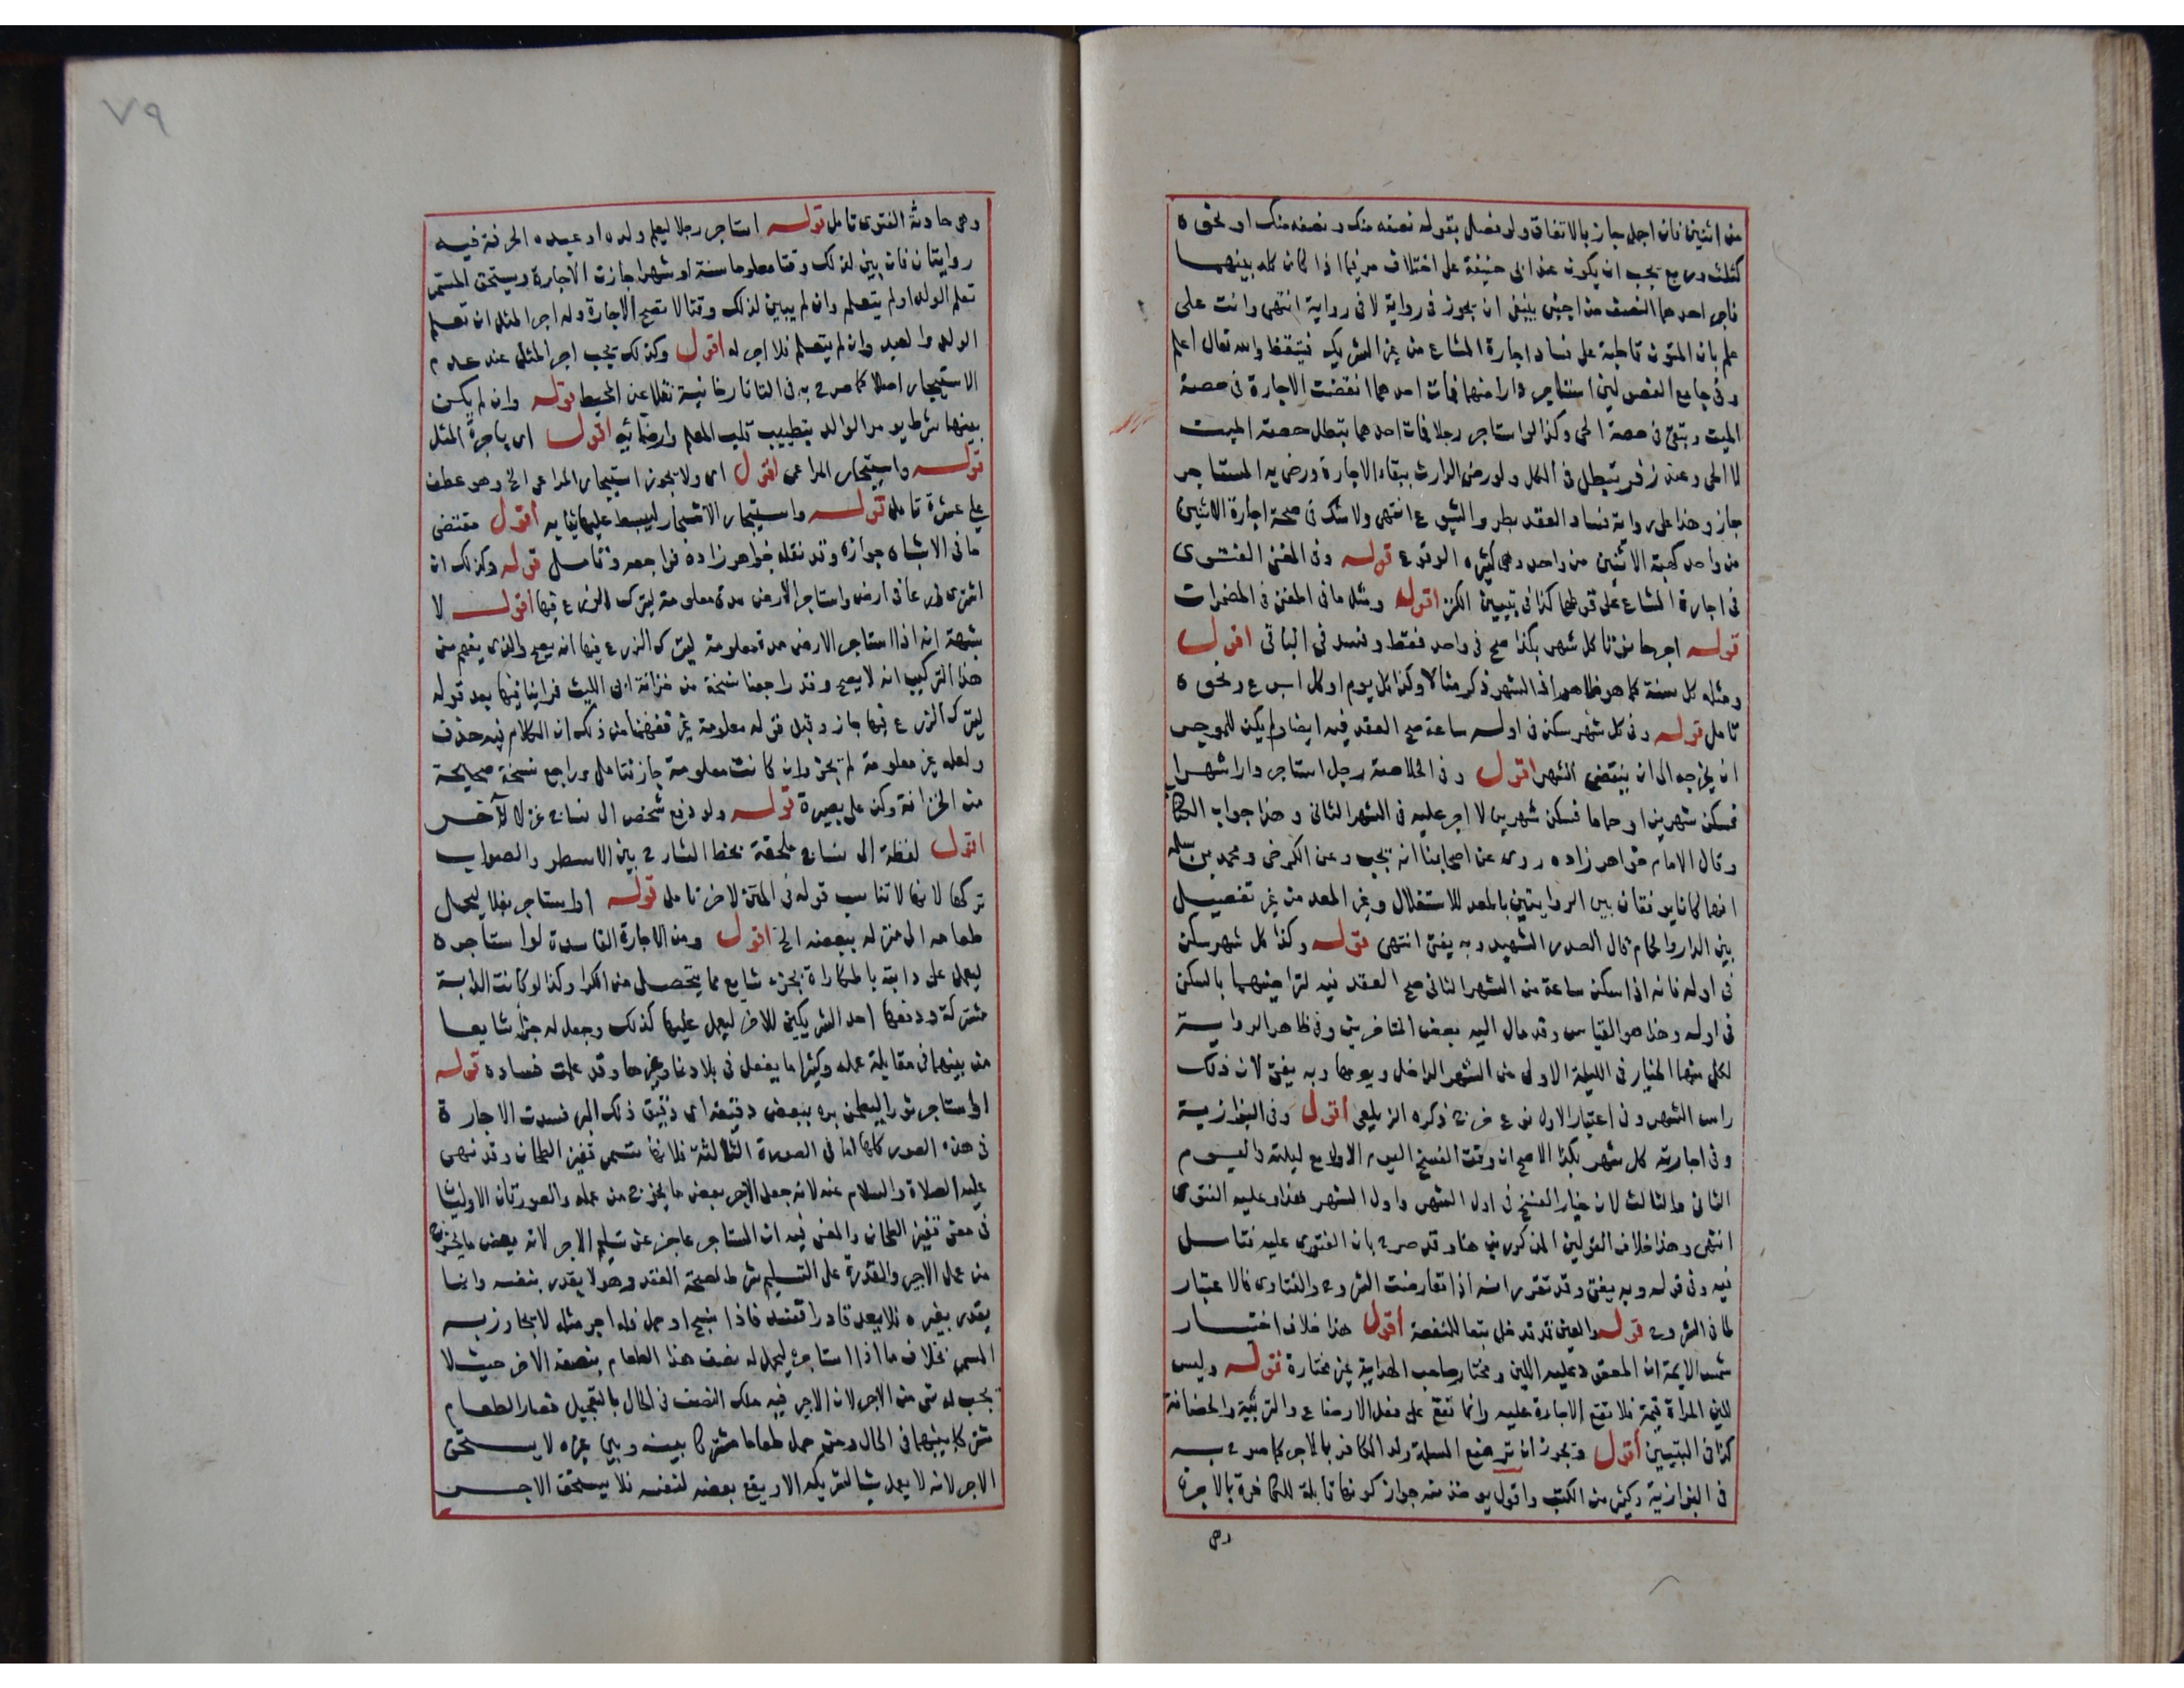 من اثنين فان اجمل جاز بالاتفاق ولو فصل بقوله نصفه منك ونصفه منك او نحوه
كثلث وربع يجب ان يكون عند ابى حنيفة على اختلاف مر فيما اذا كان كله بينهما
فاجر احدهما النصف من اجنبى ينبغى ان يجوز فى رواية لا فى رواية انتهى وانت على
علم بان المتون قاطبة على فساد اجارة المشاع من غير الشريك فتيقظ والله تعالى اعلم
وفى جامع الفصولين استاجر دارا منهما فمات احدهما انتقضت الاجارة فى حصة
الميت وتبقى فى حصة الحى وكذا لو استاجر رجلا فمات احدهما بتطل حصته الميت
لا الحى وعند زفر تبطل فى الكل ولو رضى الوارث ببقاء الاجارة ورضى به المستاجر
جاز وهذا على رواية فساد العقد بطرو الشيوع انتهى ولا شك فى صحة اجارة الاثنين
من واحد كهبة الاثنين من واحد وهى كثيره الوقوع قوله وفى المغنى الفتوى
فى اجارة المشاع على قولهما كذا فى تبيين الكنز اقول ومثل ما فى المغنى فى المضمرات
قوله اجر حانوتا كل شهر بكذا صح فى واحد فقط وفسد فى الباقى اقول
ومثله كل سنة كما هو ظاهر اذ الشهر ذكر مثالا وكذا كل يوم او كل اسبوع ونحوه
تامل قوله وفى كل شهر سكن فى اوله ساعة صح العقد فيه ايضا ولم يكن للموجر
ان يخرجه الى ان ينقضى الشهر اقول وفى الخلاصة رجل استاجر دارا شهرا
فسكن شهرين او حماما فسكن شهرين لا اجر عليه فى الشهر الثانى وهذا جواب الكتاب
وقال الامام خواهر زاده روى عن اصحابنا انه يجب وعن الكرخى ومحمد بن سلمه
انهما كانا يوفقان بين الروايتين بالمعد للاستغلال وغير المعد من غير تفصيل
بين الدار والحمام قال الصدر الشهيد وبه يفتى انتهى قوله وكذا كل شهر سكن
فى اوله فانه اذا سكن ساعة من الشهر الثانى صح العقد فيه لتراضيهما بالسكن
فى اوله وهذا هو القياس وقد مال اليه بعض المتاخرين وفى ظاهر الرواية
لكل منهما الخيار فى الليلة الاولى من الشهر الداخل ويومها وبه يفتى لان ذلك
راس الشهر وفى اعتبار الاول نوع حرج ذكره الزيلعى اقول وفى البزازية
وفى اجارته كل شهر بكذا الاصح ان وقت الفسخ اليوم الاول مع ليلته واليوم
الثانى والثالث لان خيار الفسخ فى اول الشهر واول الشهر هذا وعليه الفتوى
انتهى وهذا خلاف القولين المذكورين هنا وقد صرح بان الفتوى عليه فتامل
فيه وفى قوله وبه يفتى وقد تقرر انه اذا تعارضت الشروح والفتاوى فالاعتبار
لما فى الشروح قوله والعين قد تدخل تبعا للمنفعة اقول هذا خلاف اختار
شمس الايمة ان المعقود عليه اللبن ومختار صاحب الهداية غير مختارة قوله وليس
للبن المراة قيمة فلا تقع الاجارة عليه وانما تقع على فعل الارضاع والتربية والحضانة
كذا فى التبيين اقول ويجوز ان ترضع المسلمة ولد الكافر بالاجر كما صرح به
فى البزازية وكثير من الكتب واقول يوخذ منه جواز كونها قابلة للكافرة بالاجرة
وهى
٧٩
وهى حادثة الفتوى تامل قوله استاجر رجلا ليعلم ولده او عبده الحرفة فيه
روايتان فان بين لذلك وقتا معلوما سنة او شهرا جازت الاجارة ويستحق المسمى
تعلم الولد او لم يتعلم وان لم يبين لذلك وقتا لا تصح الاجارة وله اجر المثل ان تعلم
الولد والعبد وان لم يتعلم فلا اجر له اقول وكذلك يجب اجر المثل عند عدم
الاستيجار اصلا كما صرح به فى التاتارخانية نقلا عن المحيط قوله وان لم يكن
بينهما شرط يومر الوالد بتطييب قلب المعلم وارضائه اقول اى باجرة المثل
قوله واستيجار المراعى اقول اى ولا يجوز استيجار المراعى الخ وهو عطف
على عشرة تامل قوله واستيجار الاشجار ليبسط عليها ثيابه اقول مقتضى
ما فى الاشباه جوازه وقد نقله خواهر زاده فراجعه وتامل قوله وكذلك ان
اشترى زرعا فى ارض واستاجر الارض مدة معلومة ليترك الزرع فيها اقول لا
شبهة انه اذا استاجر الارض مدة معلومة ليترك الزرع فيها انه يصح والذى يفهم من
هذا التركيب انه لا يصح وقد راجعنا نسخة من خزانة ابى الليث فراينا فيها بعد قوله
ليترك الزرع فيها جاز وقبل قوله معلومة غير ففهمنا من ذلك ان الكلام فيه حذف
ولعله غير معلومة لم يجز وان كانت معلومة جاز فتامل وراجع نسخة صحيحة
من الخزانة وكن على بصيرة قوله ولو دفع شخص الى نساج غزلا لآخر
اقول لفظة الى نساج ملحقة بخط الشارح بين الاسطر والصواب
تركها لانها لا تناسب قوله فى المتن لاخر تامل قوله او استاجر بغلا ليحمل
طعامه الى منزله ببعضه الخ اقول ومن الاجارة الفاسدة لو استاجره
ليعمل على دابته بالمكاراة بجزء شايع مما يتحصل من الكرا وكذا لو كانت الدابة
مشتركة ودفعها احد الشريكين للاخر ليعمل عليها كذلك وجعل له جزا شايعا
من بينهما فى مقابلة عمله وكثيرا ما يفعل فى بلادنا وغيرها وقد علمت فساده قوله
او استاجر ثورا ليطحن بره ببعض دقيقه اى دقيق ذلك البر فسدت الاجارة
فى هذه الصور كلها اما فى الصورة الثالثة فلانها تسمى قفيز الطحان وقد نهى
عليه الصلاة والسلام عنه لانه جعل الاجر بعض ما يخرج من عمله والصورتان الاوليتا
فى معنى قفيز الطحان والمعنى فيه ان المستاجر عاجز عن تسليم الاجر لانه بعض ما يخرج
من عمل الاجير والقدرة على التسليم شرط لصحة العقد وهو لا يقدر بنفسه وانما
يقدر بغيره فلا يعد قادرا فتفسد فاذا نسج او حمل فله اجر مثله لا يجاوز به
المسمى بخلاف ما اذا استاجره ليحمل له نصف هذا الطعام بنصفه الاخر حيث لا
يجب له شى من الاجر لان الاجير فيه ملك النصف فى الحال بالتعجيل فصار الطعام
مشتركا بينهما فى الحال ومن حمل طعاما مشتركا بينه وبين غيره لا يستحق
الاجر لانه لا يعمل شيا لشريكه الا ويقع بعضه لنفسه فلا يستحق الاجر